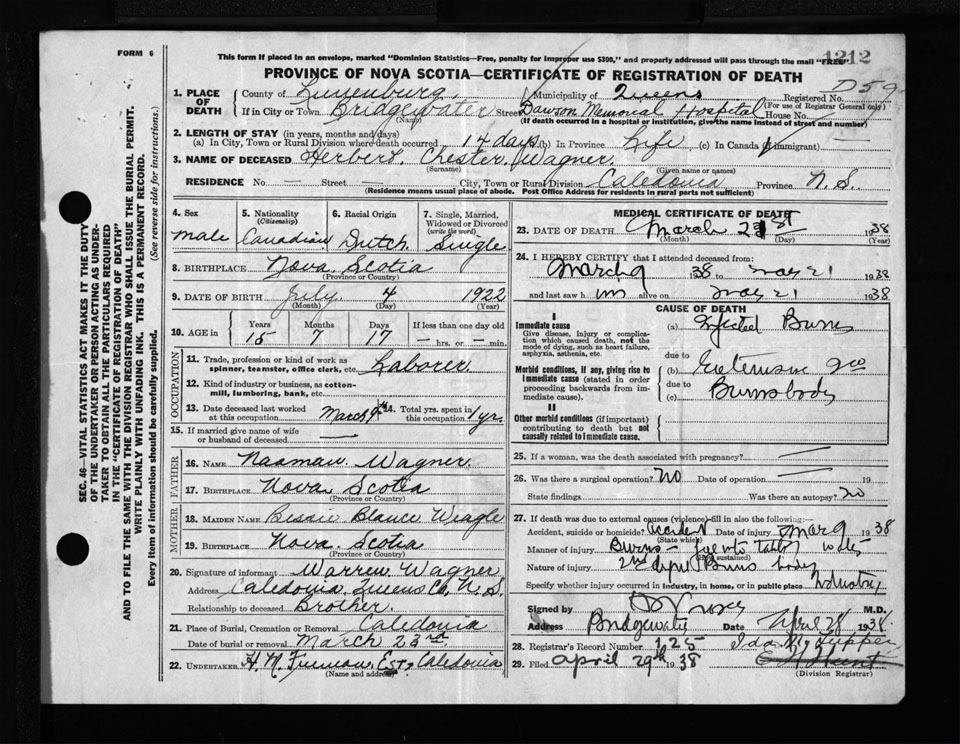 FORM 6
This form if placed in an envelope, marked "Dominion Statistics—Free, penalty for improper use $300," and properly addressed will pass through the mail "FREE"
1212
PROVINCE OF NOVA SCOTIA—CERTIFICATE OF REGISTRATION OF DEATH
D59
1. PLACE OF DEATH County of Lunenburg Municipality of Queens Registered No.
(For use of Registrar General only)
If in City or Town Bridgewater Street Dawson Memorial Hospital House No.
(If death occurred in a hospital or institution, give the name instead of street and number)
2. LENGTH OF STAY (in years, months and days)
(a) In City, Town or Rural Division where death occurred 14 days (b) In Province Life (c) In Canada if immigrant —
3. NAME OF DECEASED Herbert Chester Wagner
(Surname) (Given name or names)
RESIDENCE No. — Street — City, Town or Rural Division Caledonia Province N.S.
(Residence means usual place of abode. Post Office Address for residents in rural parts not sufficient)
4. Sex Male
5. Nationality (Citizenship) Canadian
6. Racial Origin Dutch
7. Single, Married, Widowed or Divorced (write the word) Single
8. BIRTHPLACE Nova Scotia
(Province or Country)
9. DATE OF BIRTH July 4 1922
(Month) (Day) (Year)
10. AGE in Years 15 Months 7 Days 17 If less than one day old — hrs. or — min.
OCCUPATION
11. Trade, profession or kind of work as spinner, teamster, office clerk, etc. Laborer
12. Kind of industry or business, as cotton-mill, lumbering, bank, etc.
13. Date deceased last worked at this occupation March 9th
14. Total yrs. spent in this occupation 1 yr.
15. If married give name of wife or husband of deceased —
FATHER
16. NAME Naaman Wagner
17. BIRTHPLACE Nova Scotia
(Province or Country)
MOTHER
18. MAIDEN NAME Bessie Blance Weagle
19. BIRTHPLACE Nova Scotia
(Province or Country)
20. Signature of informant Warren Wagner
Address Caledonia Queens Co. N.S.
Relationship to deceased Brother
21. Place of Burial, Cremation or Removal Caledonia
Date of burial or removal March 23rd
22. UNDERTAKER H. M. Freeman, Esq., Caledonia
(Name and address)
MEDICAL CERTIFICATE OF DEATH
23. DATE OF DEATH March 21st 1938
(Month) (Day) (Year)
24. I HEREBY CERTIFY that I attended deceased from:
March 9 1938 to May 21 1938
and last saw him alive on May 21 1938
CAUSE OF DEATH
I
Immediate cause
Give disease, injury or complication which caused death, not the mode of dying, such as heart failure, asphyxia, asthenia, etc.
(a) Infected Burns
due to
Morbid conditions, if any, giving rise to immediate cause (stated in order proceeding backwards from immediate cause).
(b) Extensive
due to
(c) Burns body
II
Other morbid conditions (if important) contributing to death but not causally related to immediate cause.
25. If a woman, was the death associated with pregnancy? —
26. Was there a surgical operation? No Date of operation — 19
State findings Was there an autopsy? no
27. If death was due to external causes (violence) fill in also the following:—
Accident, suicide or homicide? Accident Date of injury Mar 9 1938
(State which)
Manner of injury Burns —
(How sustained)
Nature of injury 2nd Burns body
Specify whether injury occurred in industry, in home, or in public place Industry
Signed by M.D.
Address Bridgewater Date April 28 1938
28. Registrar's Record Number 125
29. Filed April 29th 1938
(Division Registrar)
SEC. 46—VITAL STATISTICS ACT MAKES IT THE DUTY OF THE UNDERTAKER OR PERSON ACTING AS UNDERTAKER TO OBTAIN ALL THE PARTICULARS REQUIRED IN THE "CERTIFICATE OF REGISTRATION OF DEATH" AND TO FILE THE SAME WITH THE DIVISION REGISTRAR WHO SHALL ISSUE THE BURIAL PERMIT.
WRITE PLAINLY WITH UNFADING INK. THIS IS A PERMANENT RECORD.
Every item of information should be carefully supplied. (See reverse side for instructions.)